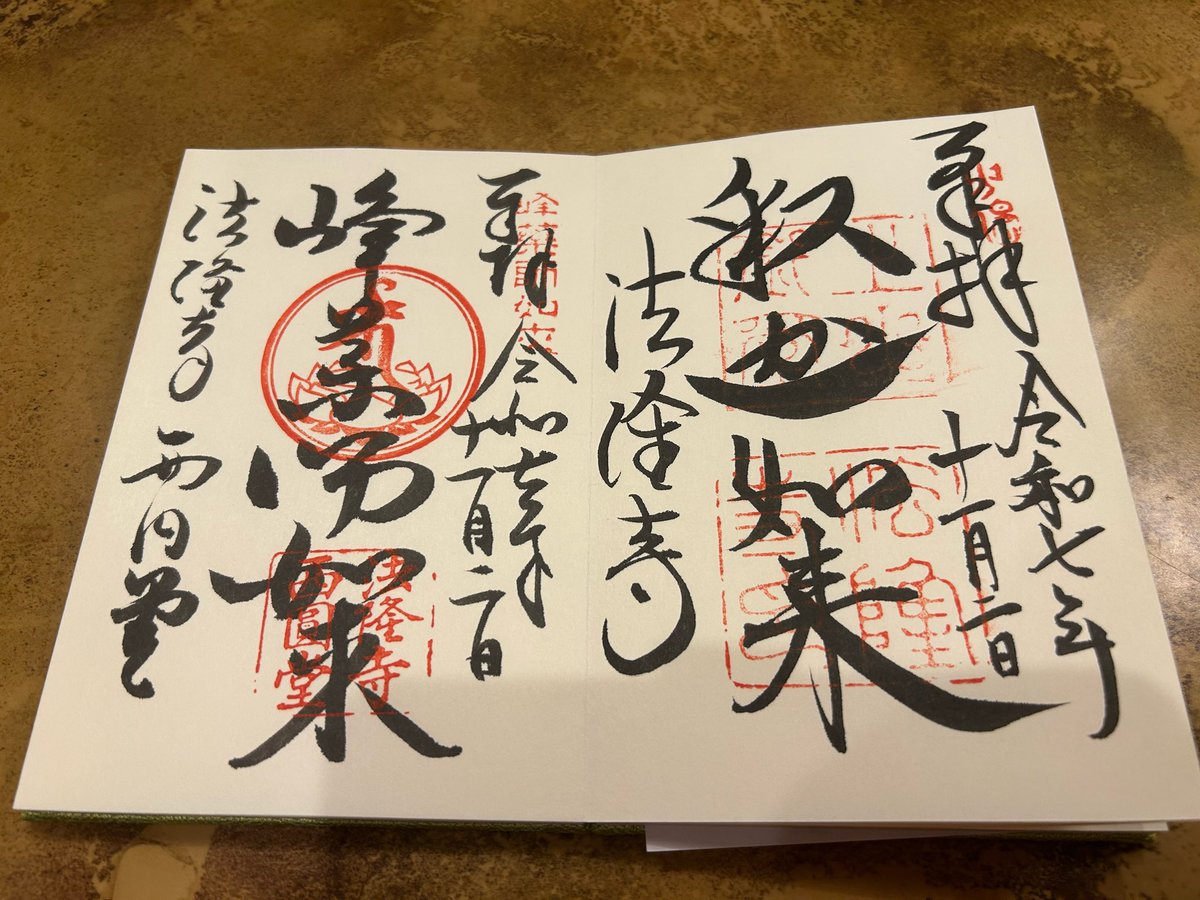 奉拝
令和七年
十一月二日
釈迦如来
法隆寺
奉拝
令和七年
十一月二日
峰薬師如来
峰薬師如来
法隆寺
西円堂
法隆寺
西圓堂